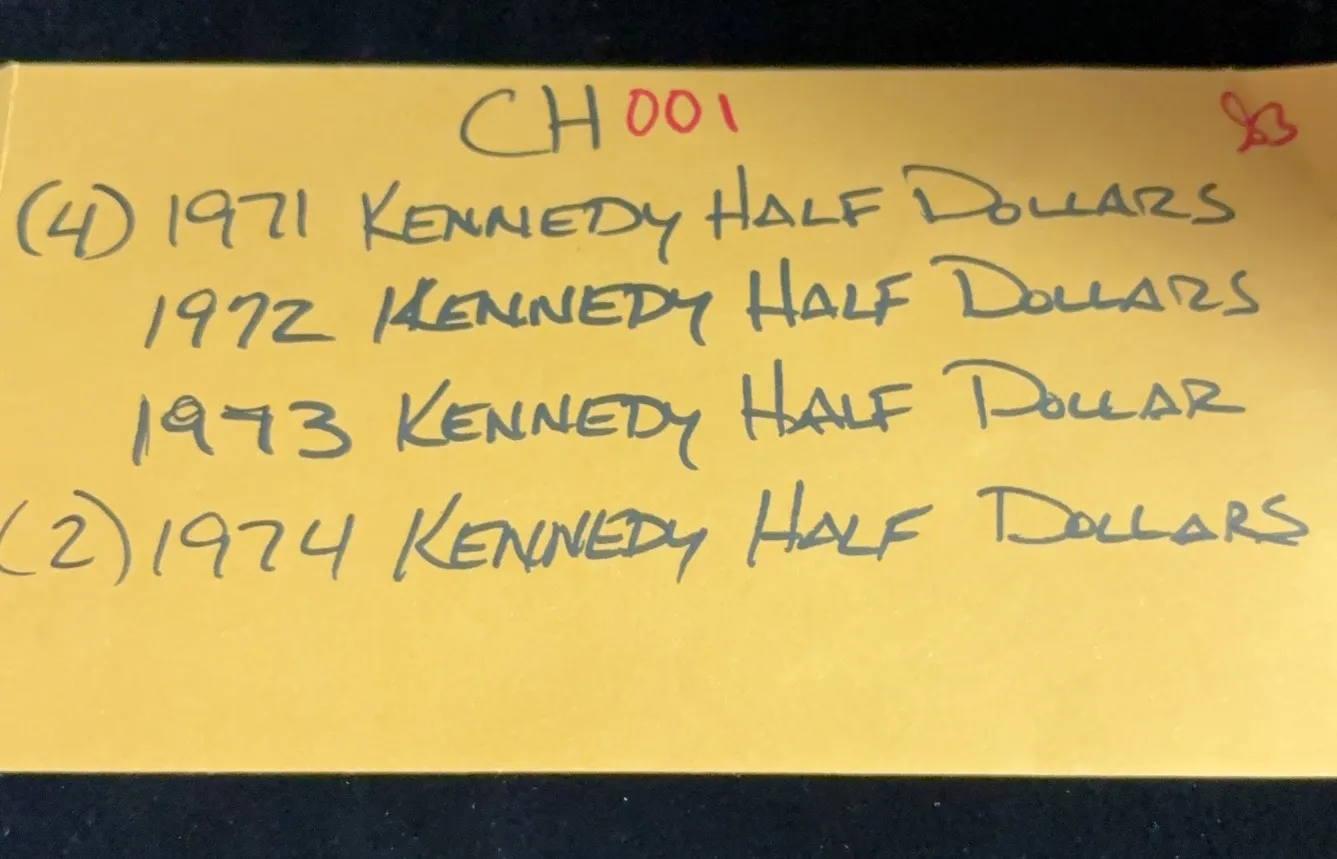 CH 001
(4) 1971 KENNEDY HALF DOLLARS
1972 KENNEDY HALF DOLLARS
1973 KENNEDY HALF DOLLAR
(2) 1974 KENNEDY HALF DOLLARS